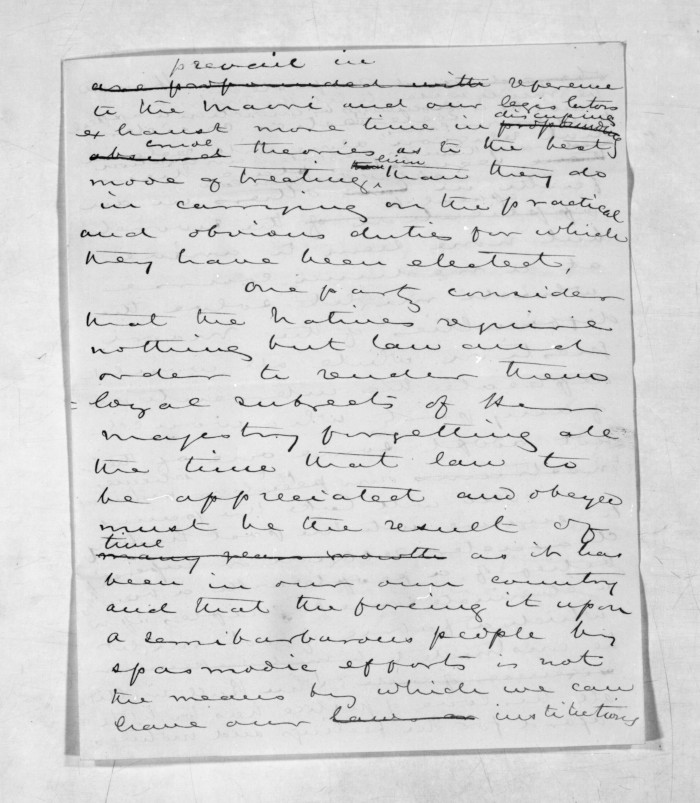 prevail in
are propounded with reference
to the Maori and our legislators
discussing
exhaust more time in propounding
crude
absurd theories as to the best
him
mode of treating, than they do
in carrying on the practical
and obvious duties for which
they have been elected,
One party consider
that the Natives require
nothing but law and
order to render them
loyal subjects of Her
majesty forgetting all
the time that law to
be appreciated and obeyed
must be the result of
time
many years growth as it has
been in our own country
and that the forcing it upon
a semibarbarous people by
spasmodic efforts is not
the means by which we can
have our laws institutions